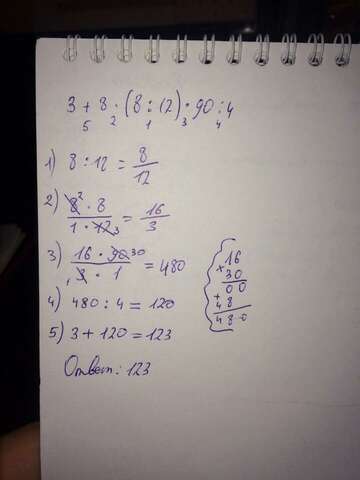 3 + 8 · (8 : 12) · 90 : 4
5 2 1 3 4
1) 8 : 12 = 8/12
2) 8² · 8 / 1 · 12 3 = 16/3
3) 16 · 90 30 / 1 3 · 1 = 480
4) 480 : 4 = 120
5) 3 + 120 = 123
Ответ: 123
16
× 30
00
+
48
480